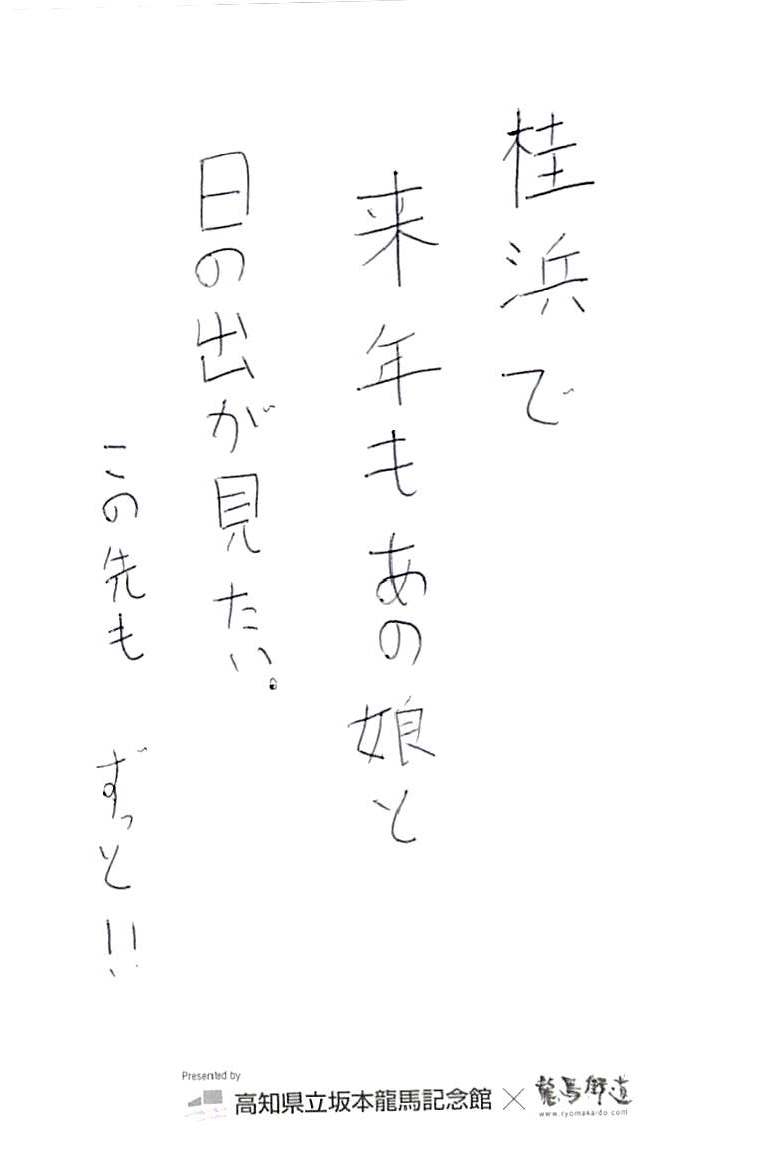 桂浜で
来年もあの娘と
日の出が見たい。
この先も ずっと!!
Presented by
高知県立坂本龍馬記念館 × 龍馬街道
www.ryomakaido.com